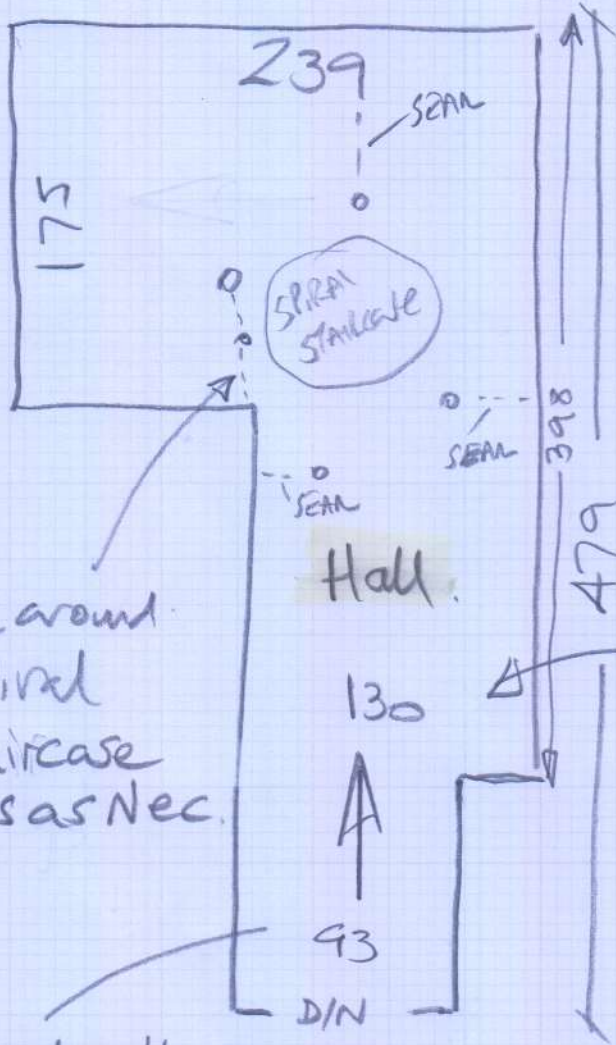 239
SEAM
175
SPIRAL
STAIRCASE
SEAM
398
479
SEAM
Hall.
around
aircase
s as Nec.
130
93
D/N